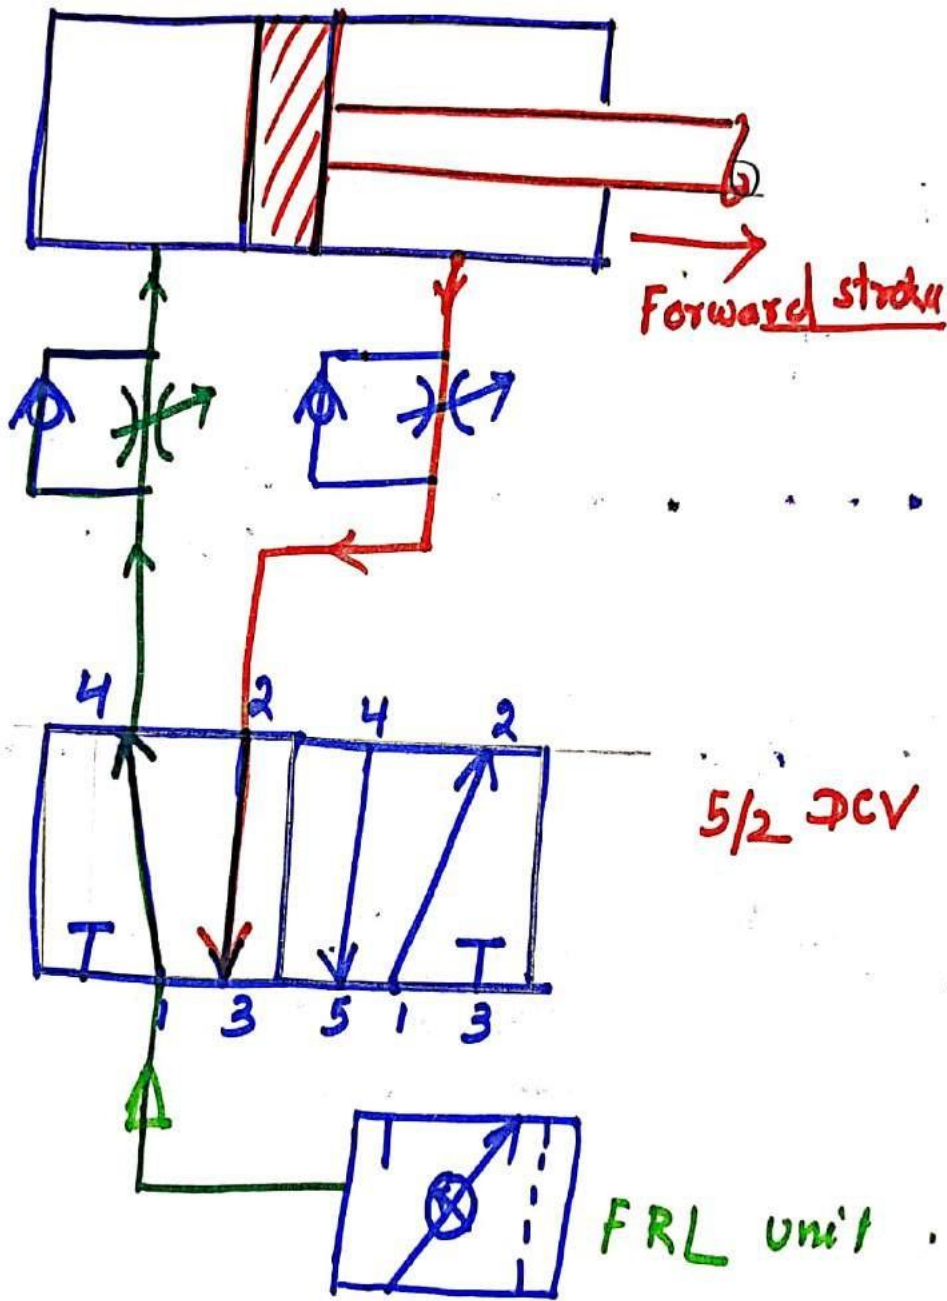 Forward stroke
4 2 4 2
5/2 DCV
T T
1 3 5 1 3
FRL unit